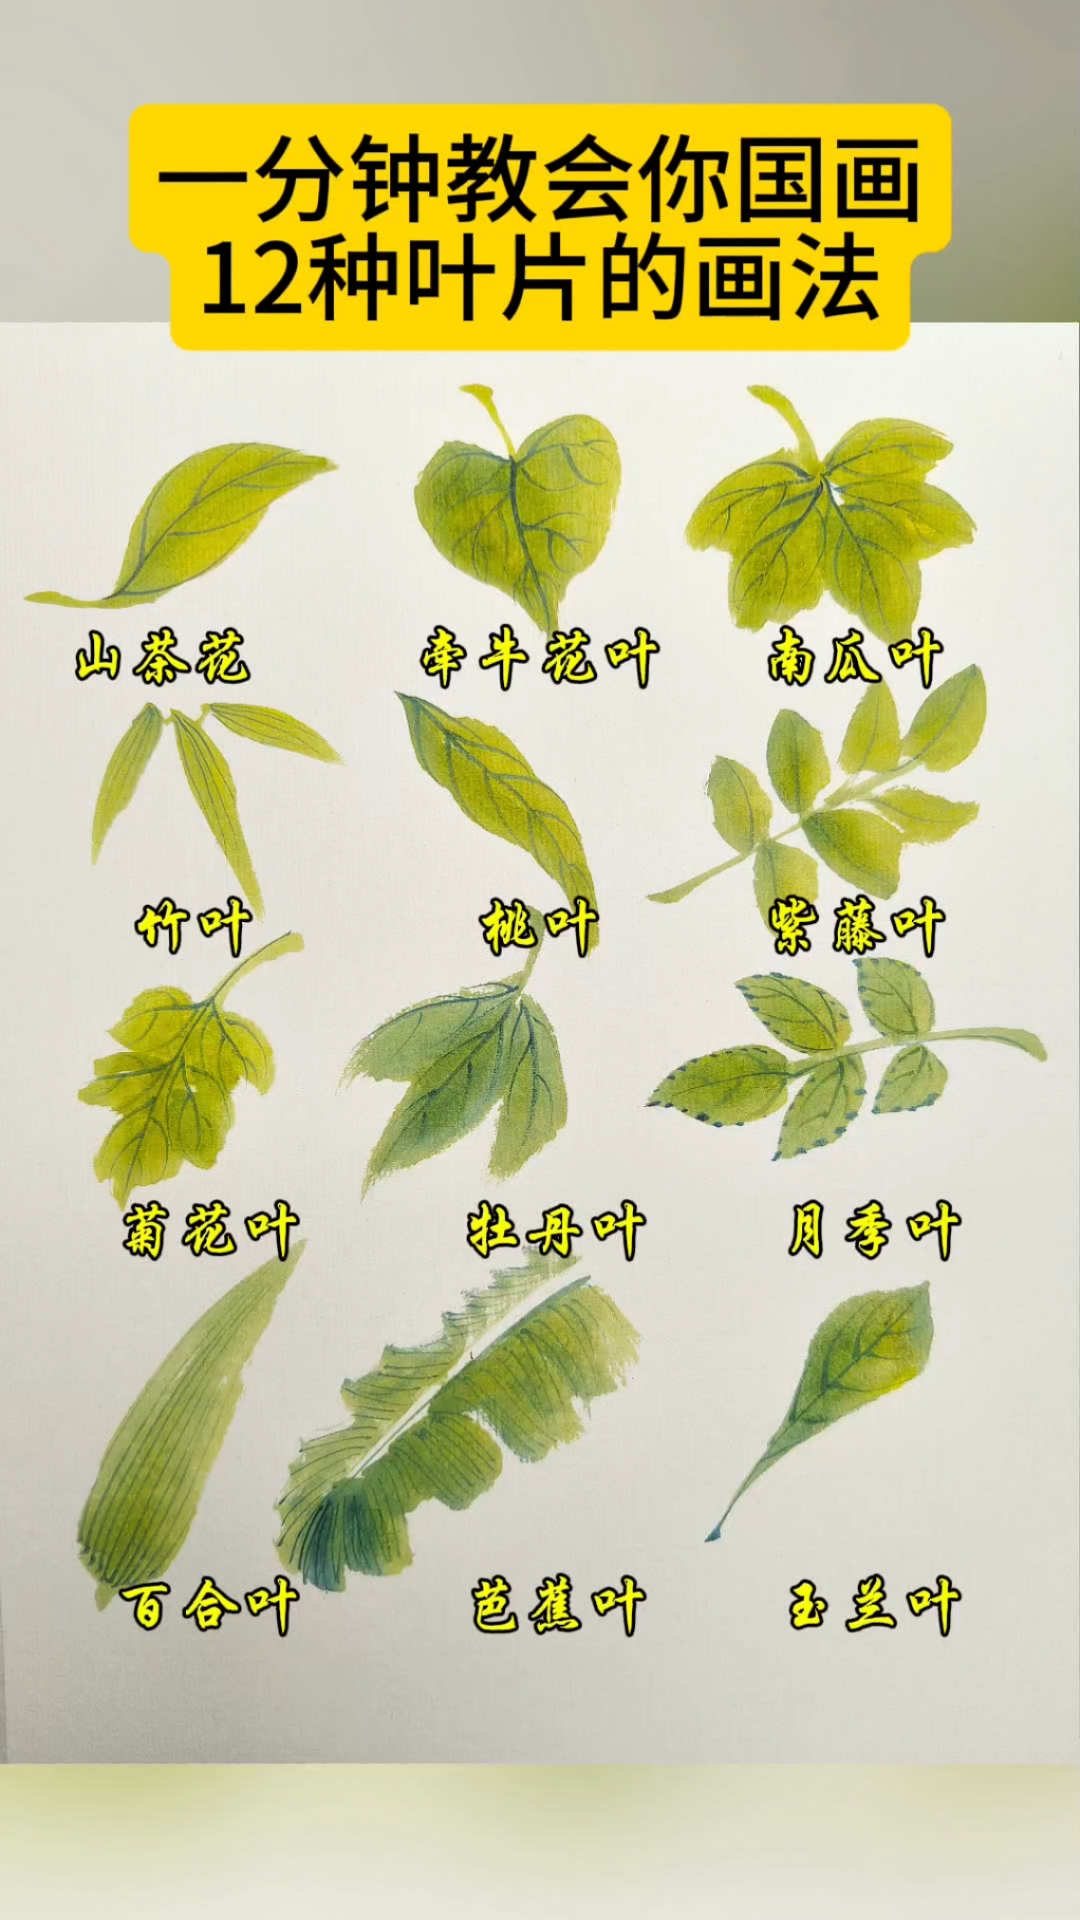 一分钟教会你国画
12种叶片的画法
山茶花
牵牛花叶
南瓜叶
竹叶
桃叶
紫藤叶
菊花叶
牡丹叶
月季叶
百合叶
芭蕉叶
玉兰叶